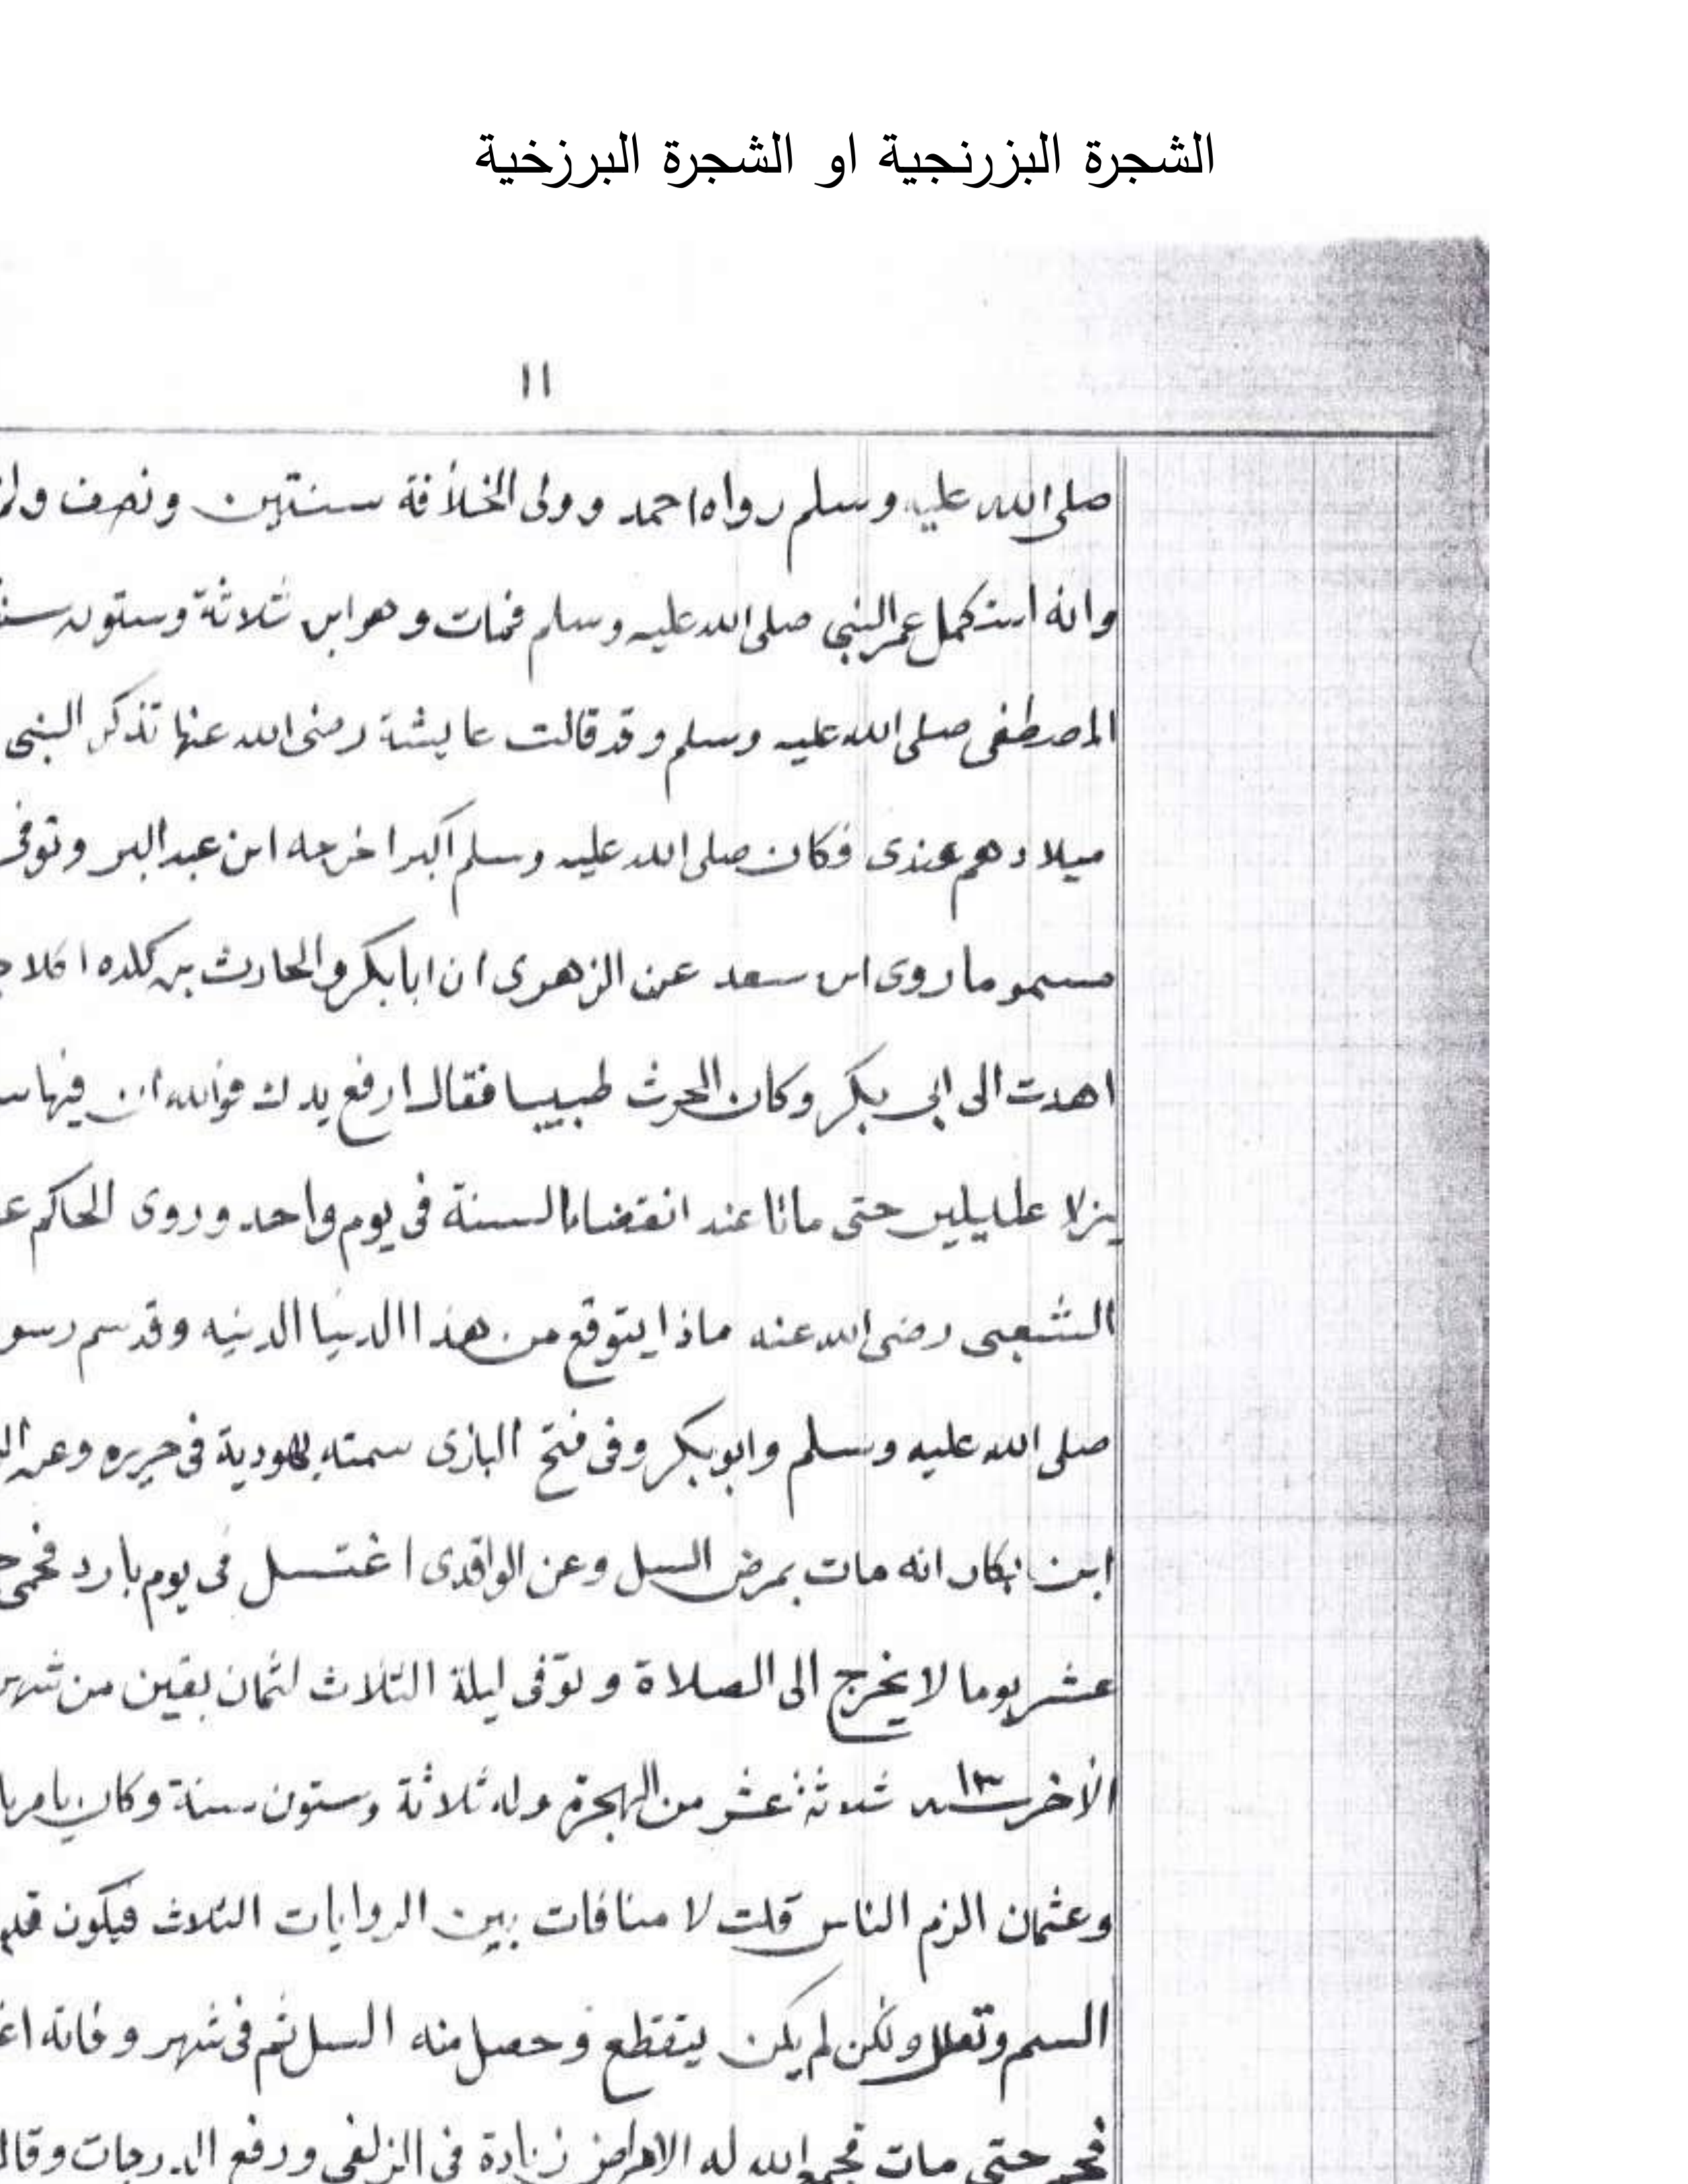 الشجرة البزرنجية او الشجرة البرزخية
١١
صلى الله عليه وسلم رواه احمد وولى الخلافة سنتين ونصف
وانه استكمل عمر النبي صلى الله عليه وسلم فمات وهو ابن ثلاثة وستون
المصطفى صلى الله عليه وسلم وقد قالت عايشة رضى الله عنها تذكر النبى
ميلادهم عندى فكان صلى الله عليه وسلم اكبر اخرجه ابن عبد البر وتوفى
ما روى ابن سعد عن الزهرى ان ابا بكر والحارث بن كلده اكلا
اهدت الى ابى بكر وكان الحرث طبيبا فقال ارفع يدك فوالله ان فيها
يزلا عليلين حتى ماتا عند انقضاء السنة فى يوم واحد وروى الحاكم
الشعبى رضى الله عنه ماذا يتوقع من هذا الدنيا الدنيه وقد سم
صلى الله عليه وسلم وابو بكر وفى فتح البازى سمته يهودية فى حريره وعن
ابن بكار انه مات بمرض السل وعن الواقدى اغتسل فى يوم بارد فحمى
عشر يوما لا يخرج الى الصلاة وتوفى ليلة الثلاث لثمان بقين من شهر
الأخر سنة ١٣ ثلاثة عشر من الهجرة وله ثلاثة وستون سنة وكان
وعثمان الزم الناس قلت لا منافات بين الروايات الثلاث فيكون
السم وتعلل ولكن لم يكن ينقطع وحصل منه السل ثم فى شهر وفاته
حتى مات فجمع الله له الامراض زيادة فى الزلفى ورفع الدرجات وقال